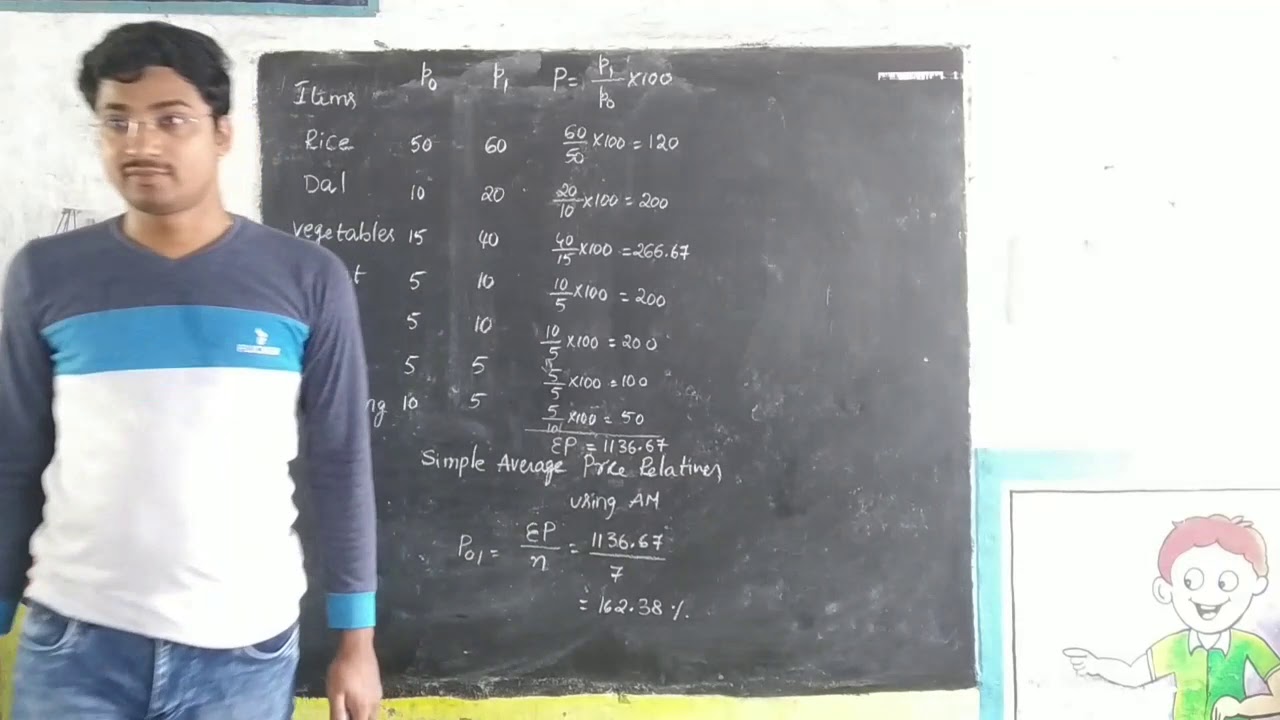 Items p₀ p₁ P= p₁/p₀ ×100
Rice 50 60 60/50 ×100 = 120
Dal 10 20 20/10 ×100 = 200
vegetables 15 40 40/15 ×100 = 266.67
t 5 10 10/5 ×100 = 200
5 10 10/5 ×100 = 200
5 5 5/5 ×100 = 100
ng 10 5 5/10 ×100 = 50
ΣP = 1136.67
Simple Average Price Relatives
using AM
P₀₁ = ΣP/n = 1136.67/7
= 162.38 %